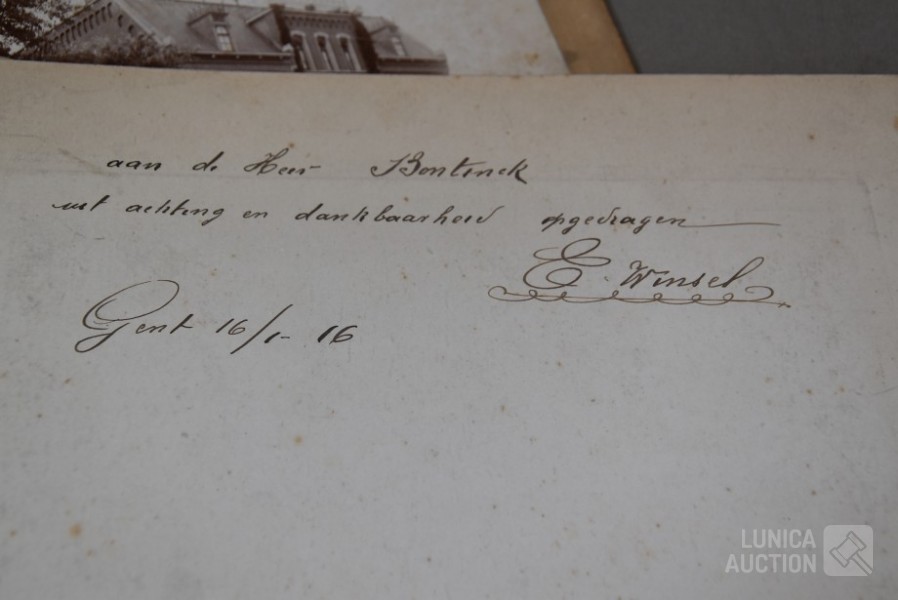 aan de Heer Bontinck
uit achting en dankbaarheid opgedragen
E. Winsel
Gent 16/1- 16
LUNICA
AUCTION